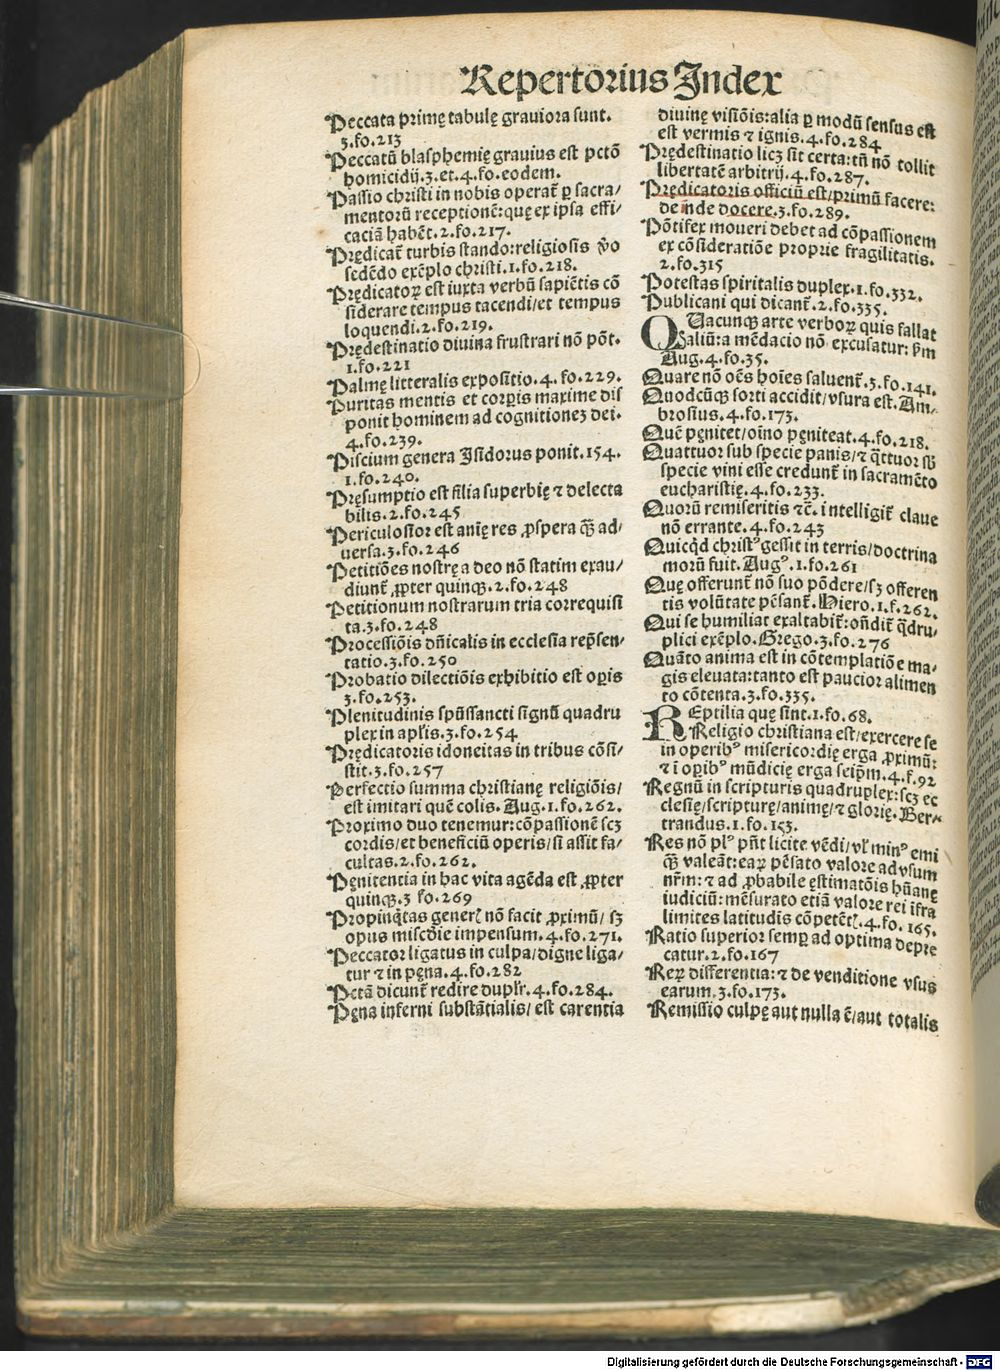 Repertorius Index
Peccata primę tabulę grauiora sunt.
3.fo.213
Peccatū blasphemię grauius est pctō
homicidij.3.et.4.fo.eodem.
Passio christi in nobis operat̄ ꝑ sacra/
mentorū receptionē:quę ex ipsa effi/
caciā habēt.2.fo.217.
Prędicat̄ turbis stando:religiosis v̄o
sedēdo exēplo christi.1.fo.218.
Prędicatoꝝ est iuxta verbū sapiētis cō
siderare tempus tacendi/et tempus
loquendi.2.fo.219.
Prędestinatio diuina frustrari nō pōt.
1.fo.221
Palmę litteralis expositio.4.fo.229.
Puritas mentis et corꝑis maxime dis
ponit hominem ad cognitionez dei.
4.fo.239.
Piscium genera Isidorus ponit.154.
1.fo.240.
Pręsumptio est filia superbię ⁊ delecta
bilis.2.fo.245
Periculosior est anię res ꝓspera q̄ꝫ ad/
uersa.3.fo.246
Petitiōes nostrę a deo nō statim exau/
diunt̄ ꝓpter quinqꝫ.2.fo.248
Petitionum nostrarum tria correquisi
ta.3.fo.248
Processiōis dn̄icalis in ecclesia rep̄sen-
tatio.3.fo.250
Probatio dilectiōis exhibitio est oꝑis
3.fo.253.
Plenitudinis spūssancti signū quadru
plex in apl̄is.3.fo.254
Prędicatoris idoneitas in tribus cōsi/
stit.3.fo.257
Perfectio summa christianę religiōis/
est imitari quē colis. Aug.1.fo.262.
Proximo duo tenemur:cōpassionē scꝫ
cordis/et beneficiū operis/si assit fa/
cultas.2.fo.262.
Pęnitentia in hac vita agēda est ꝓpter
quinqꝫ.3 fo.269
Propinq̄tas generꝭ nō facit ꝓximū/ sꝫ
opus mis̄cdie impensum.4.fo.271.
Peccator ligatus in culpa/digne liga/
tur ⁊ in pęna.4.fo.282
Pctā dicunt̄ redire dupl̄r.4.fo.284.
Pęna inferni substātialis/ est carentia
diuinę visiōis:alia ꝑ modū sensus est
est vermis ⁊ ignis.4.fo.284
Prędestinatio licꝫ sit certa:tn̄ nō tollit
libertatē arbitrij.4.fo.287.
Prędicatoris officiū est/primū facere:
deinde docere.3.fo.289.
Pōtifex moueri debet ad cōpassionem
ex cōsideratiōe proprie fragilitatis.
2.fo.315
Potestas spiritalis duplex.1.fo.332.
Publicani qui dicant̄.2.fo.335.
QUacunqꝫ arte verboꝝ quis fallat
aliū:a mēdacio nō excusatur: ẜm
Aug.4.fo.35.
Quare nō oēs hoīes saluent̄.3.fo.141.
Quodcūqꝫ sorti accidit/vsura est. Am-
brosius.4.fo.173.
Quē pęnitet/oīno pęniteat.4.fo.218.
Quattuor sub specie panis/⁊ q̄ttuor sb̄
specie vini esse credunt̄ in sacramēto
eucharistię.4.fo.233.
Quorū remiseritis ⁊c̄. intelligit̄ claue
nō errante.4.fo.243
Quicq̄d christꝰ gessit in terris/doctrina
morū fuit. Augꝰ.1.fo.261
Quę offerunt̄ nō suo pōdere/sꝫ offeren
tis volūtate pēsant̄. Hiero.1.f.262.
Qui se humiliat exaltabit̄:ōndit̄ q̄dru/
plici exēplo. Grego.3.fo.276
Quāto anima est in cōtemplatiōe ma-
gis eleuata:tanto est paucior alimen
to cōtenta.3.fo.335.
REptilia quę sint.1.fo.68.
Religio christiana est/exercere se
in operibꝰ misericordię erga ꝓximū:
⁊ i oꝑibꝰ mūdicię erga seip̄m.4.f.92
Regnū in scripturis quadruplex:scꝫ ec
clesię/scripturę/animę/⁊ glorię. Ber-
trandus.1.fo.153.
Res nō plꝰ pn̄t licite vēdi/vl̄ minꝰ emi
q̄ꝫ valeāt:eaꝝ pēsato valore ad vsum
nr̄m:⁊ ad ꝓbabile ęstimatōis hūanę
iudiciū:mēsurato etiā valore rei ifra
limites latitudis cōpetētꝭ.4.fo.165.
Ratio superior semꝑ ad optima depre
catur.2.fo.167
Reꝝ differentia:⁊ de venditione vsus
earum.3.fo.173.
Remissio culpę aut nulla ē/aut totalis
Digitalisierung gefördert durch die Deutsche Forschungsgemeinschaft - DFG